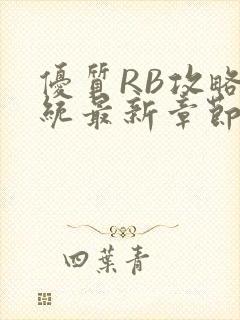 優質RB攻略
統最新章節
四葉青